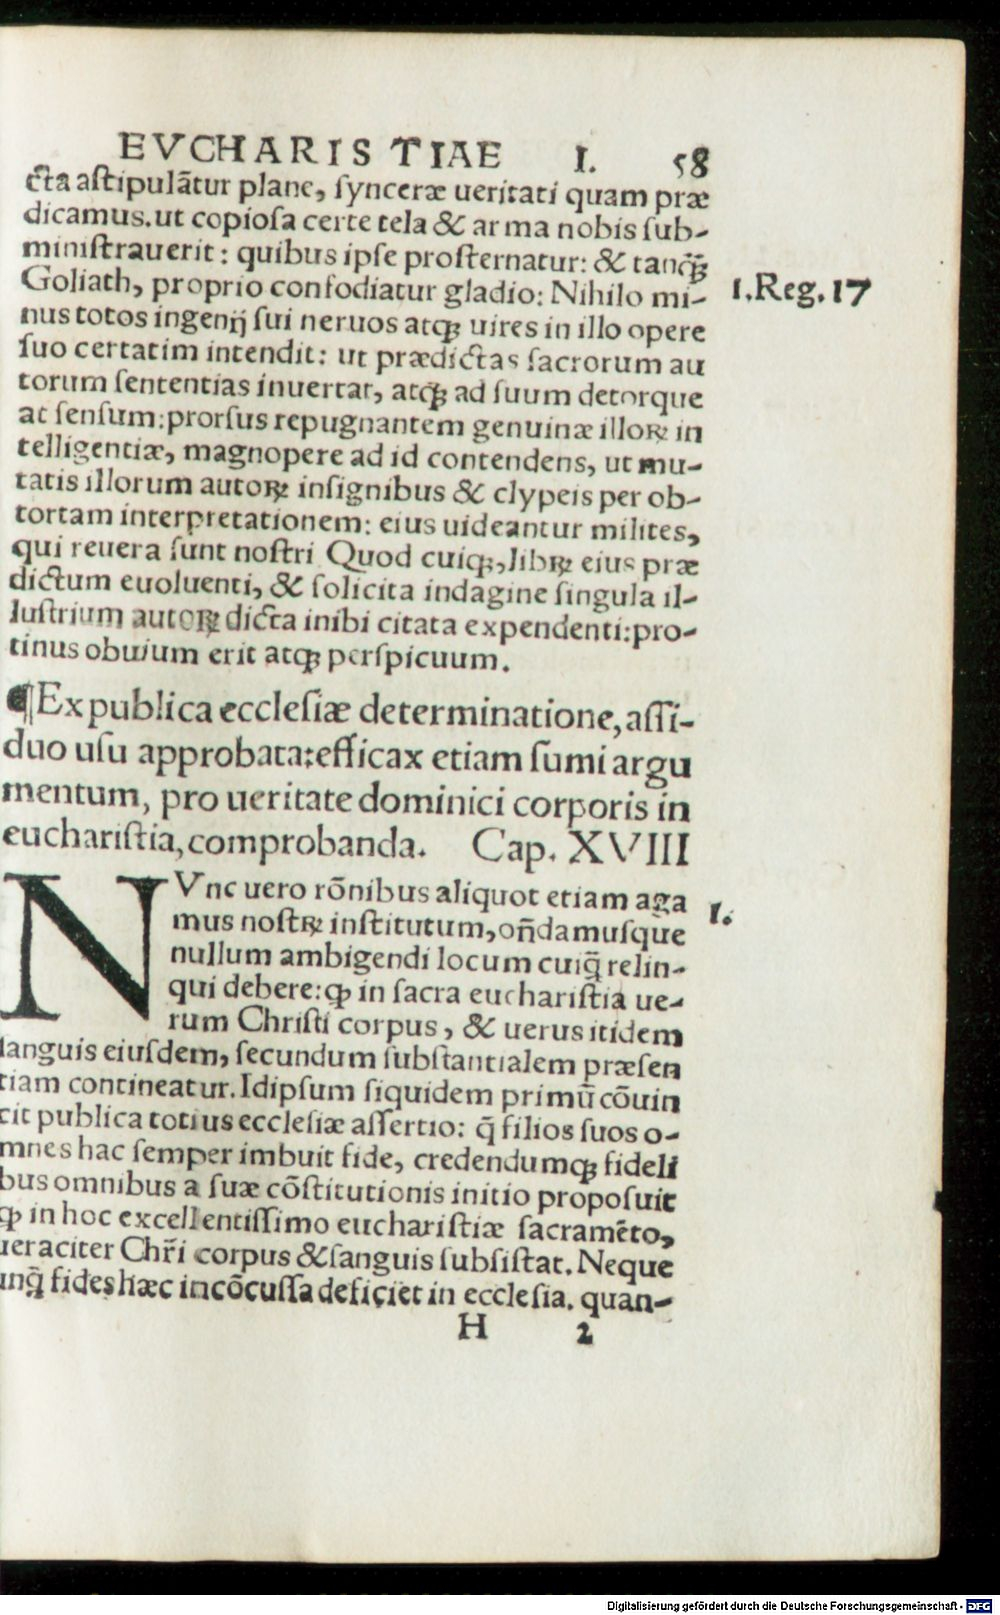 EVCHARISTIAE I. 58
cta astipulãtur plane, synceræ ueritati quam præ
dicamus. ut copiosa certe tela & arma nobis sub-
ministrauerit: quibus ipse prosternatur: & tanq̃ꝫ
Goliath, proprio confodiatur gladio: Nihilo mi-
1.Reg.17
nus totos ingenij sui neruos atqꝫ uires in illo opere
suo certatim intendit: ut prædictas sacrorum au
torum sententias inuertat, atqꝫ ad suum detorque
at sensum: prorsus repugnantem genuinæ illoꝝ in
telligentiæ, magnopere ad id contendens, ut mu-
tatis illorum autoꝝ insignibus & clypeis per ob-
tortam interpretationem: eius uideantur milites,
qui reuera sunt nostri Quod cuiqꝫ, libꝝ eius præ
dictum euoluenti, & solicita indagine singula il-
lustrium autoꝝ dicta inibi citata expendenti: pro-
tinus obuium erit atqꝫ perspicuum.
¶Ex publica ecclesiæ determinatione, assi-
duo usu approbata: efficax etiam sumi argu
mentum, pro ueritate dominici corporis in
eucharistia, comprobanda. Cap. XVIII
NVnc uero rõnibus aliquot etiam aga
1.
mus nostꝝ institutum, oñdamusque
nullum ambigendi locum cuiq̃ relin-
qui debere: ꝙ in sacra eucharistia ue-
rum Christi corpus, & uerus itidem
sanguis eiusdem, secundum substantialem præsen
tiam contineatur. Idipsum siquidem primũ cõuin
cit publica totius ecclesiæ assertio: q̃ filios suos o-
mnes hac semper imbuit fide, credendumqꝫ fideli
bus omnibus a suæ cõstitutionis initio proposuit
ꝙ in hoc excellentissimo eucharistiæ sacramẽto,
ueraciter Chr̃i corpus & sanguis subsistat. Neque
unq̃ fides hæc incõcussa deficiet in ecclesia. quan-
H 2
Digitalisierung gefördert durch die Deutsche Forschungsgemeinschaft - DFG